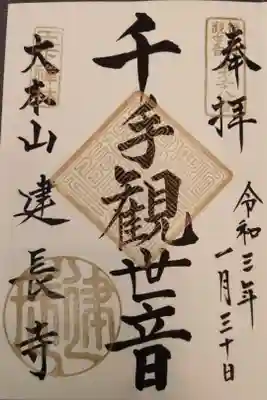 奉拝
令和三年
一月三十日
千手観世音
大本山 建長寺